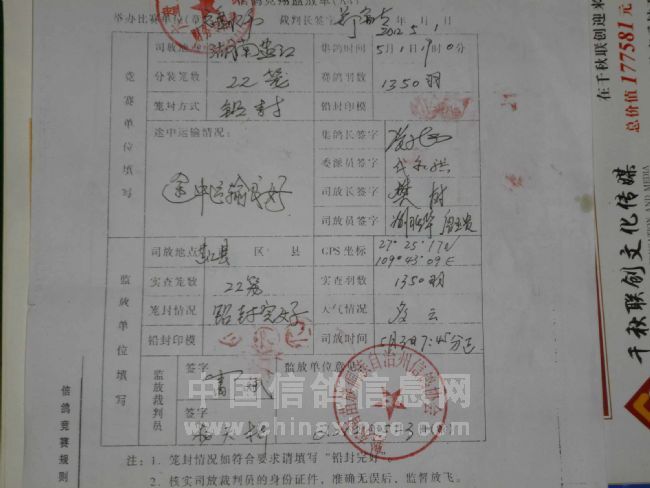 信鸽竞翔监放单
举办比赛单位(章) 裁判长签字 2012 5月1日
竞赛单位填写
司放地点 湖南芷江 集鸽时间 5月1日
分装笼数 22笼 赛鸽羽数 1350羽
笼封方式 铅封 铅封印模
途中运输情况: 集鸽长签字
途中运输良好 委派员签字
司放长签字 樊树
司放员签字
监放单位填写
司放地点 芷江县 区 县 GPS坐标 27°25′17N 109°43′09E
实查笼数 22笼 实查羽数 1350羽
笼封情况 铅封完好 天气情况 多云
铅封印模 司放时间 5月3日7:45分
监放裁判员 签字 监放单位意见:
签字 5月3日
注: 1. 笼封情况如符合要求请填写“铅封完好”。
2. 核实司放裁判员的身份证件, 准确无误后, 监督放飞。
信鸽竞赛规则
在千秋联创迎来
总价值 177581元
千秋联创文化传媒
中国信鸽信息网
www.chinaxinge.com